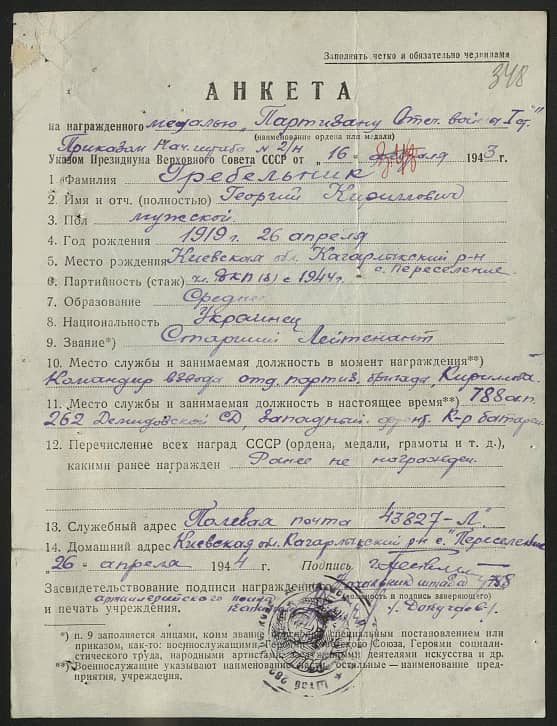 Заполнять четко и обязательно чернилами
348
АНКЕТА
на награжденного медалью „Партизану Отеч. войны I ст."
(наименование ордена или медали)
Приказом Нач. штаба № 2/н
Указом Президиума Верховного Совета СССР от „16" февраля 1943 г.
1. Фамилия Гребельник
2. Имя и отч. (полностью) Георгий Кириллович
3. Пол мужской
4. Год рождения 1919 г. 26 апреля
5. Место рождения Киевская обл. Кагарлыкский р-н
с. Переселение
6. Партийность (стаж) ч. ВКП(б) с 1944 г.
7. Образование Среднее
8. Национальность Украинец
9. Звание*) Старший Лейтенант
10. Место службы и занимаемая должность в момент награждения**)
Командир взвода отд. партиз. бригада
11. Место службы и занимаемая должность в настоящее время**) 788 ап.
262 Демидовской СД, Западный фронт. К-р батареи
12. Перечисление всех наград СССР (ордена, медали, грамоты и т. д.),
какими ранее награжден Ранее не награжден.
13. Служебный адрес Полевая почта 43827-„Л"
14. Домашний адрес Киевская обл. Кагарлыкский р-н с. „Переселение
26 - апреля 1944 г. Подпись
Засвидетельствование подписи награжденного Начальник штаба 788
артиллерийского полка (должность и подпись заверяющего)
и печать учреждения.
*) п. 9 заполняется лицами, коим звание присвоено специальным постановлением или
приказом, как-то: военнослужащими, Героями Советского Союза, Героями социалистического
труда, народными артистами, заслуженными деятелями искусства и др.
**) Военнослужащие указывают наименование части, остальные — наименование предприятия,
учреждения.